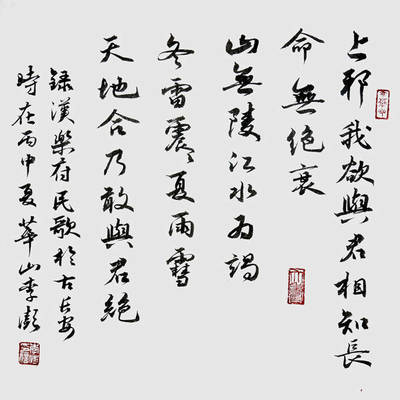 上邪我欲與君相知長
命無絕衰
山無陵江水為竭
冬雷震震夏雨雪
天地合乃敢與君絕
錄漢樂府民歌於古長安
時在丙申夏華山李彪